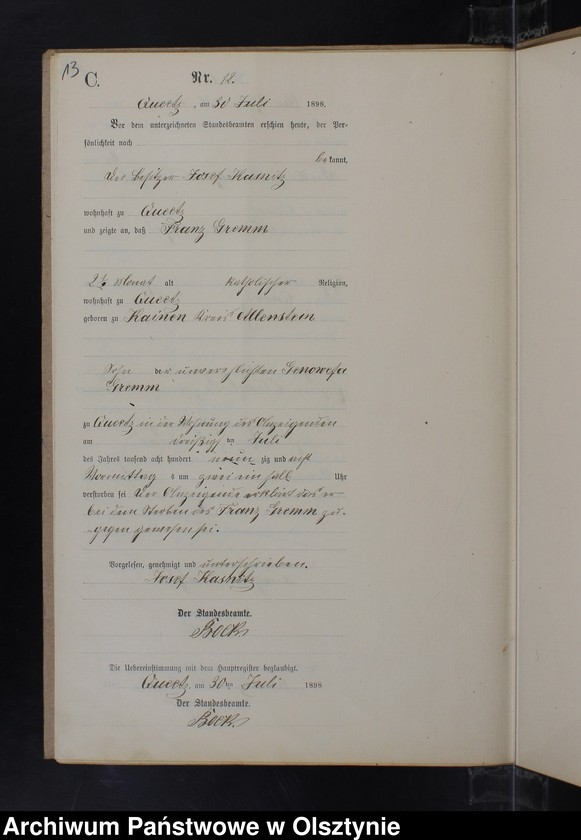 13
C.
Nr. 12.
Queetz, am 30 Juli 1898.
Vor dem unterzeichneten Standesbeamten erschien heute, der Per-
sönlichkeit nach
bekannt,
der Besitzer Josef Kasnitz
wohnhaft zu Queetz
und zeigte an, daß Franz Gremm
2½ Monat alt katholischer Religion,
wohnhaft zu Queetz
geboren zu Kainen Kreis Allenstein
Sohn der unverehelichten Genowefa
Gremm
zu Queetz in der Wohnung des Anzeigenden
am dreißigsten Juli
des Jahres tausend acht hundert neunzig und acht
Vormittags um zwei ein halb Uhr
verstorben sei Der Anzeigende erklärt das er
bei dem Sterben des Franz Gremm zu-
gegen gewesen sei.
Vorgelesen, genehmigt und unterschrieben.
Josef Kasnitz
Der Standesbeamte.
Bock
Die Uebereinstimmung mit dem Hauptregister beglaubigt.
Queetz, am 30ten Juli 1898
Der Standesbeamte.
Bock
Archiwum Państwowe w Olsztynie